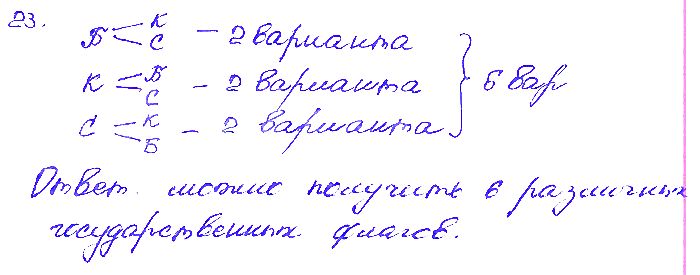 23.
Б К С - 2 варианта
К Б С - 2 варианта
С К Б - 2 варианта
} 6 вар
Ответ. можно получить 6 различных
государственных флагов.